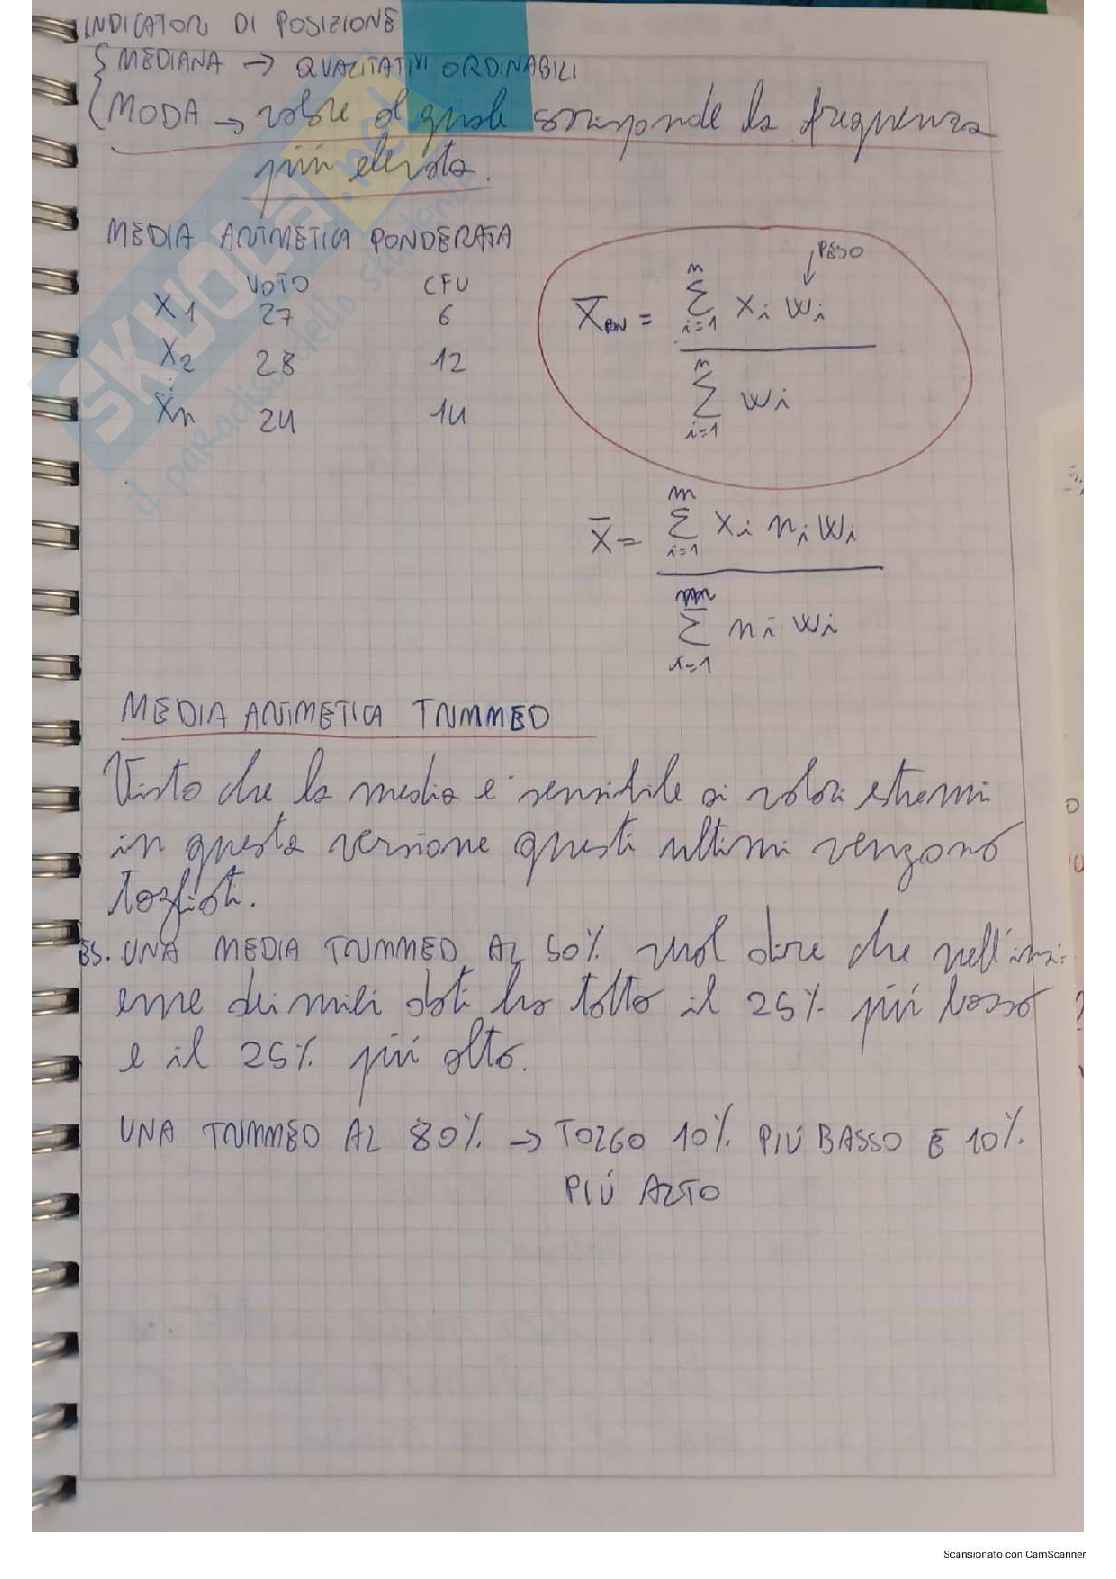 INDICATORI DI POSIZIONE
MEDIANA → QUALITATIVI ORDINABILI
MODA → valore al quale corrisponde la frequenza
più elevata.
MEDIA ARITMETICA PONDERATA
VOTO CFU
X1 27 6
X2 28 12
Xn 24 14
PESO
X̄PON = Σ i=1 n xi wi / Σ i=1 n wi
X̄ = Σ i=1 m xi ni wi / Σ i=1 m ni wi
MEDIA ARITMETICA TRIMMED
Visto che la media e' sensibile ai valori estremi
in questa versione questi ultimi vengono
tagliati.
ES. UNA MEDIA TRIMMED AL 50% vuol dire che nell'insi-
eme dei miei dati ho tolto il 25% più basso
e il 25% più alto.
UNA TRIMMED AL 80% → TOLGO 10% PIÚ BASSO E 10%
PIÚ ALTO
SKUOLA.net
il paradiso dello studente
Scansionato con CamScanner